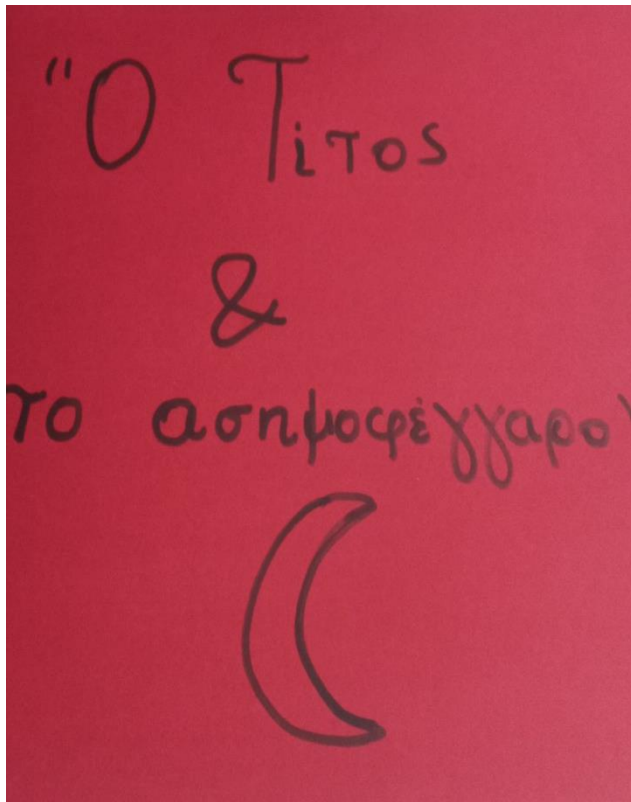 "Ο Τίτος
&
το ασημοφέγγαρο"